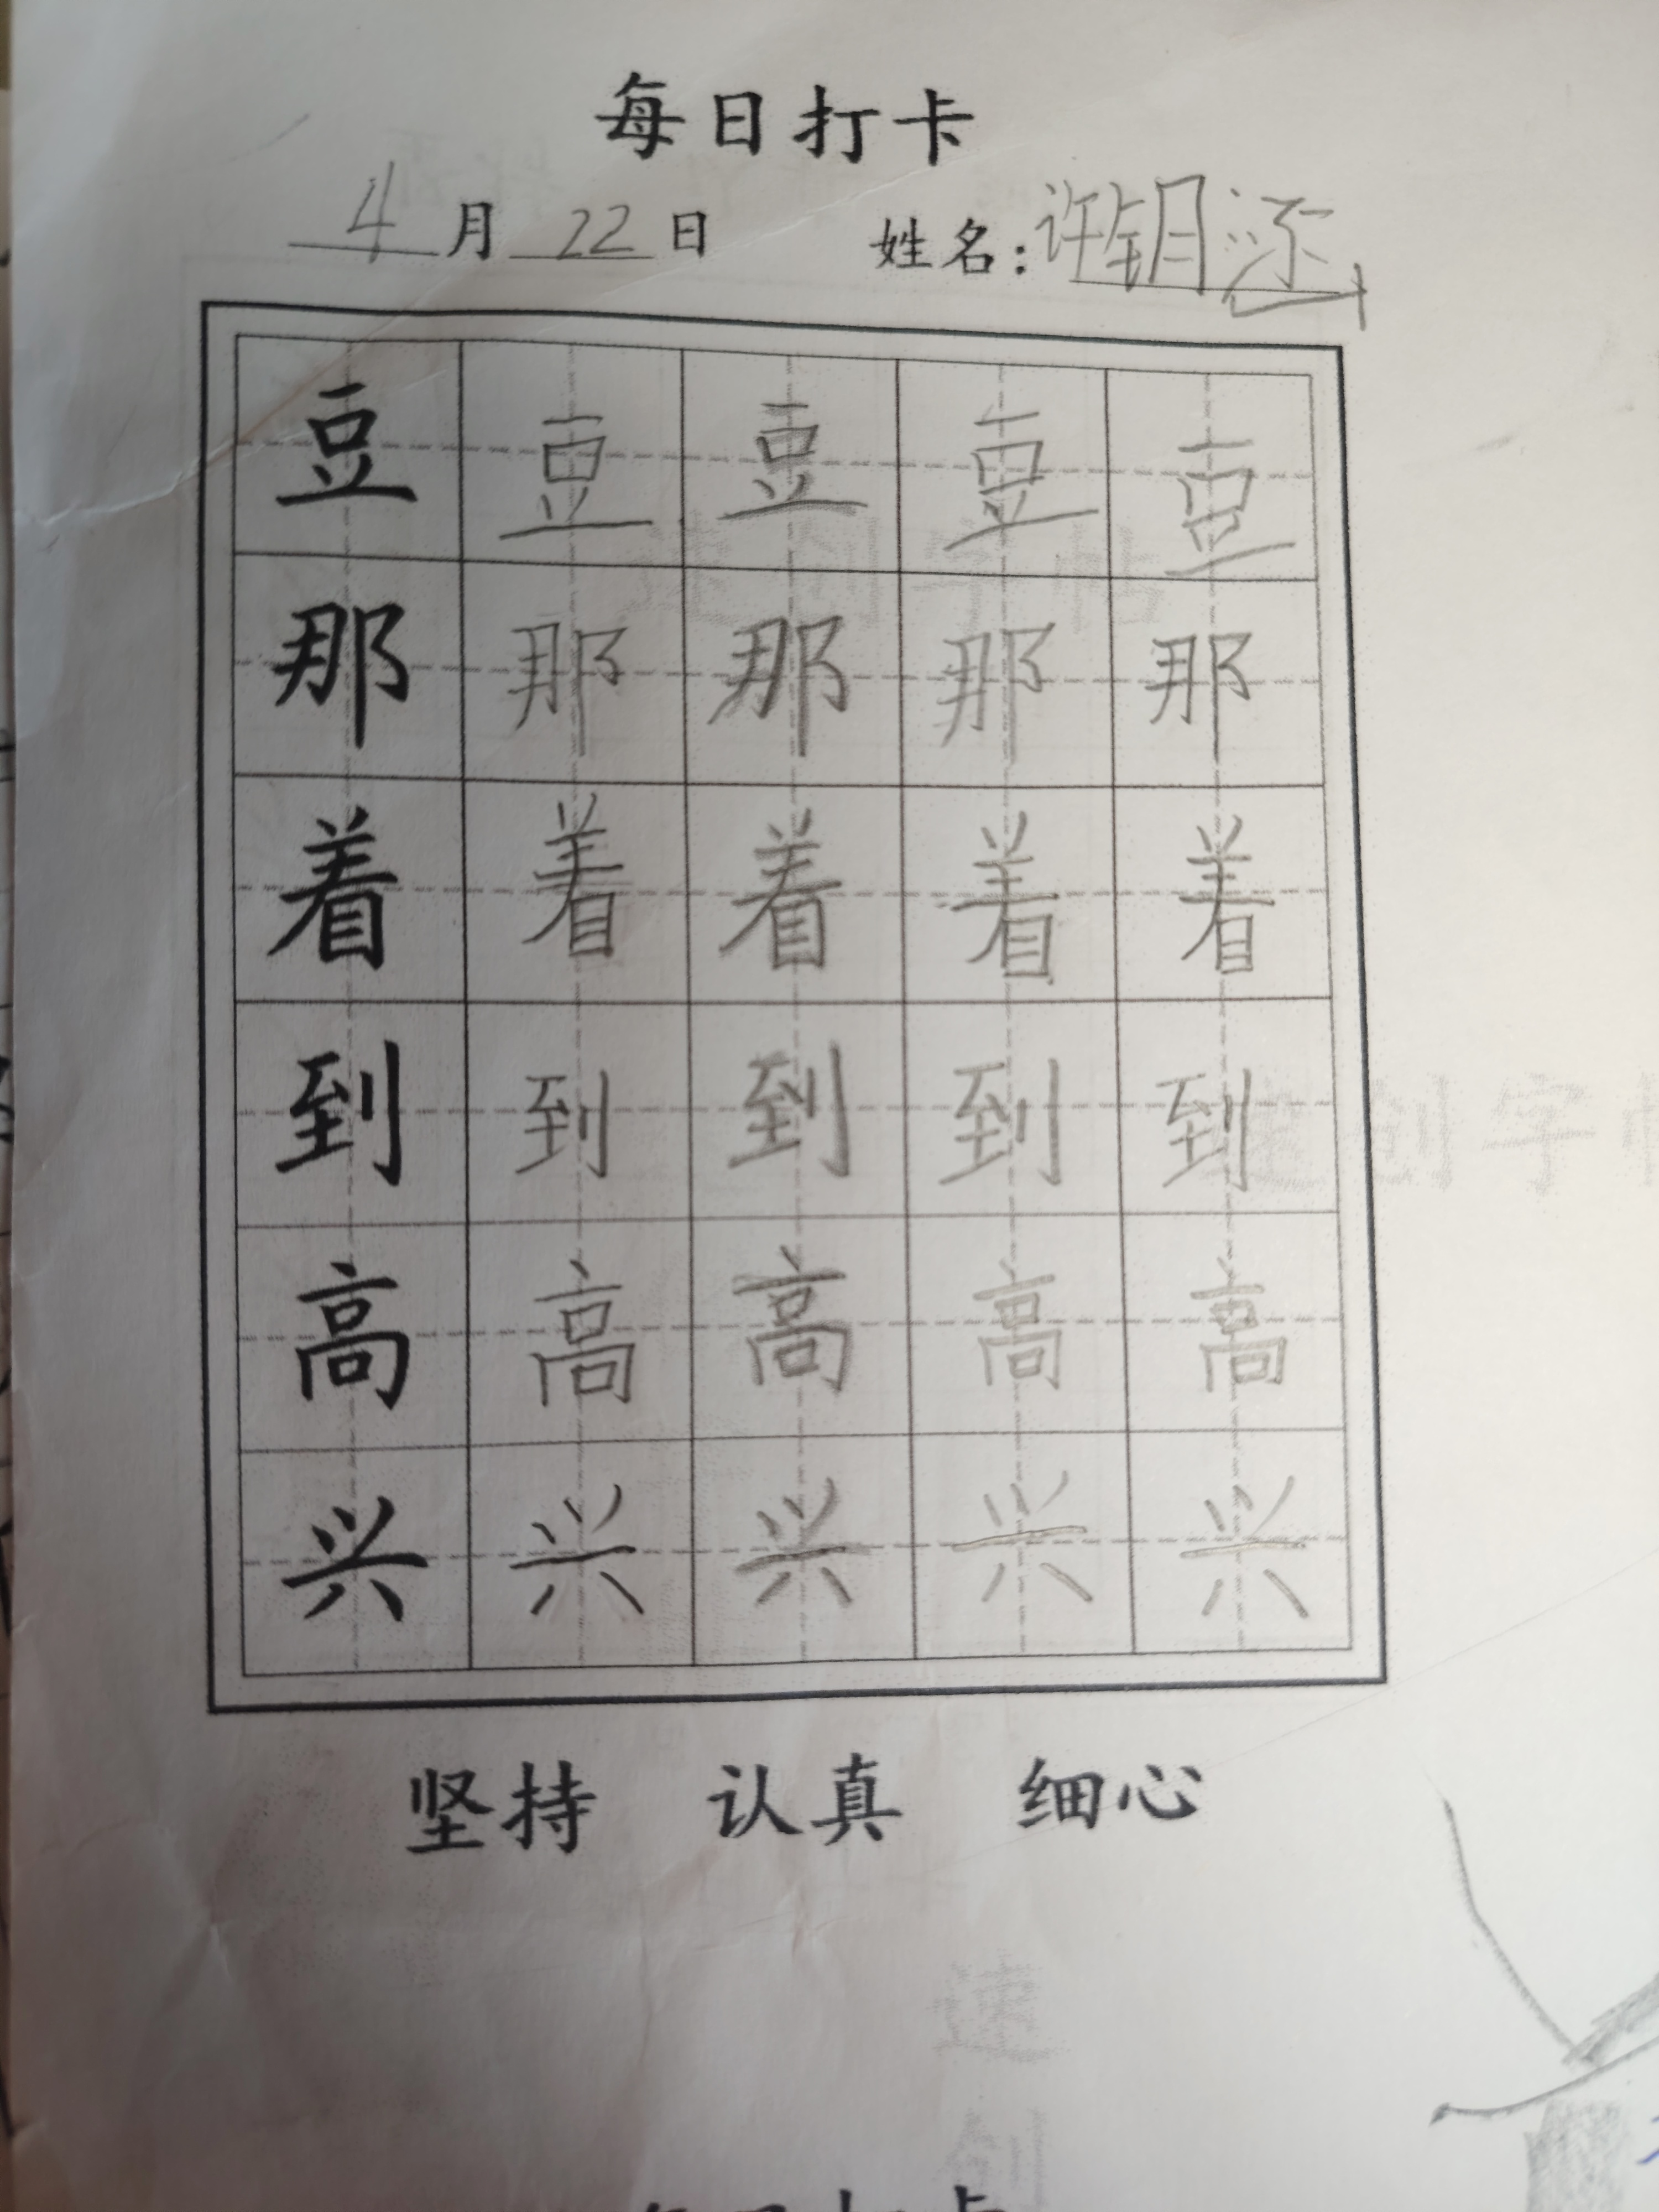 每日打卡
4月22日 姓名:许钥
豆豆豆豆豆
那那那那那
着着着着着
到到到到到
高高高高高
兴兴兴兴兴
坚持 认真 细心